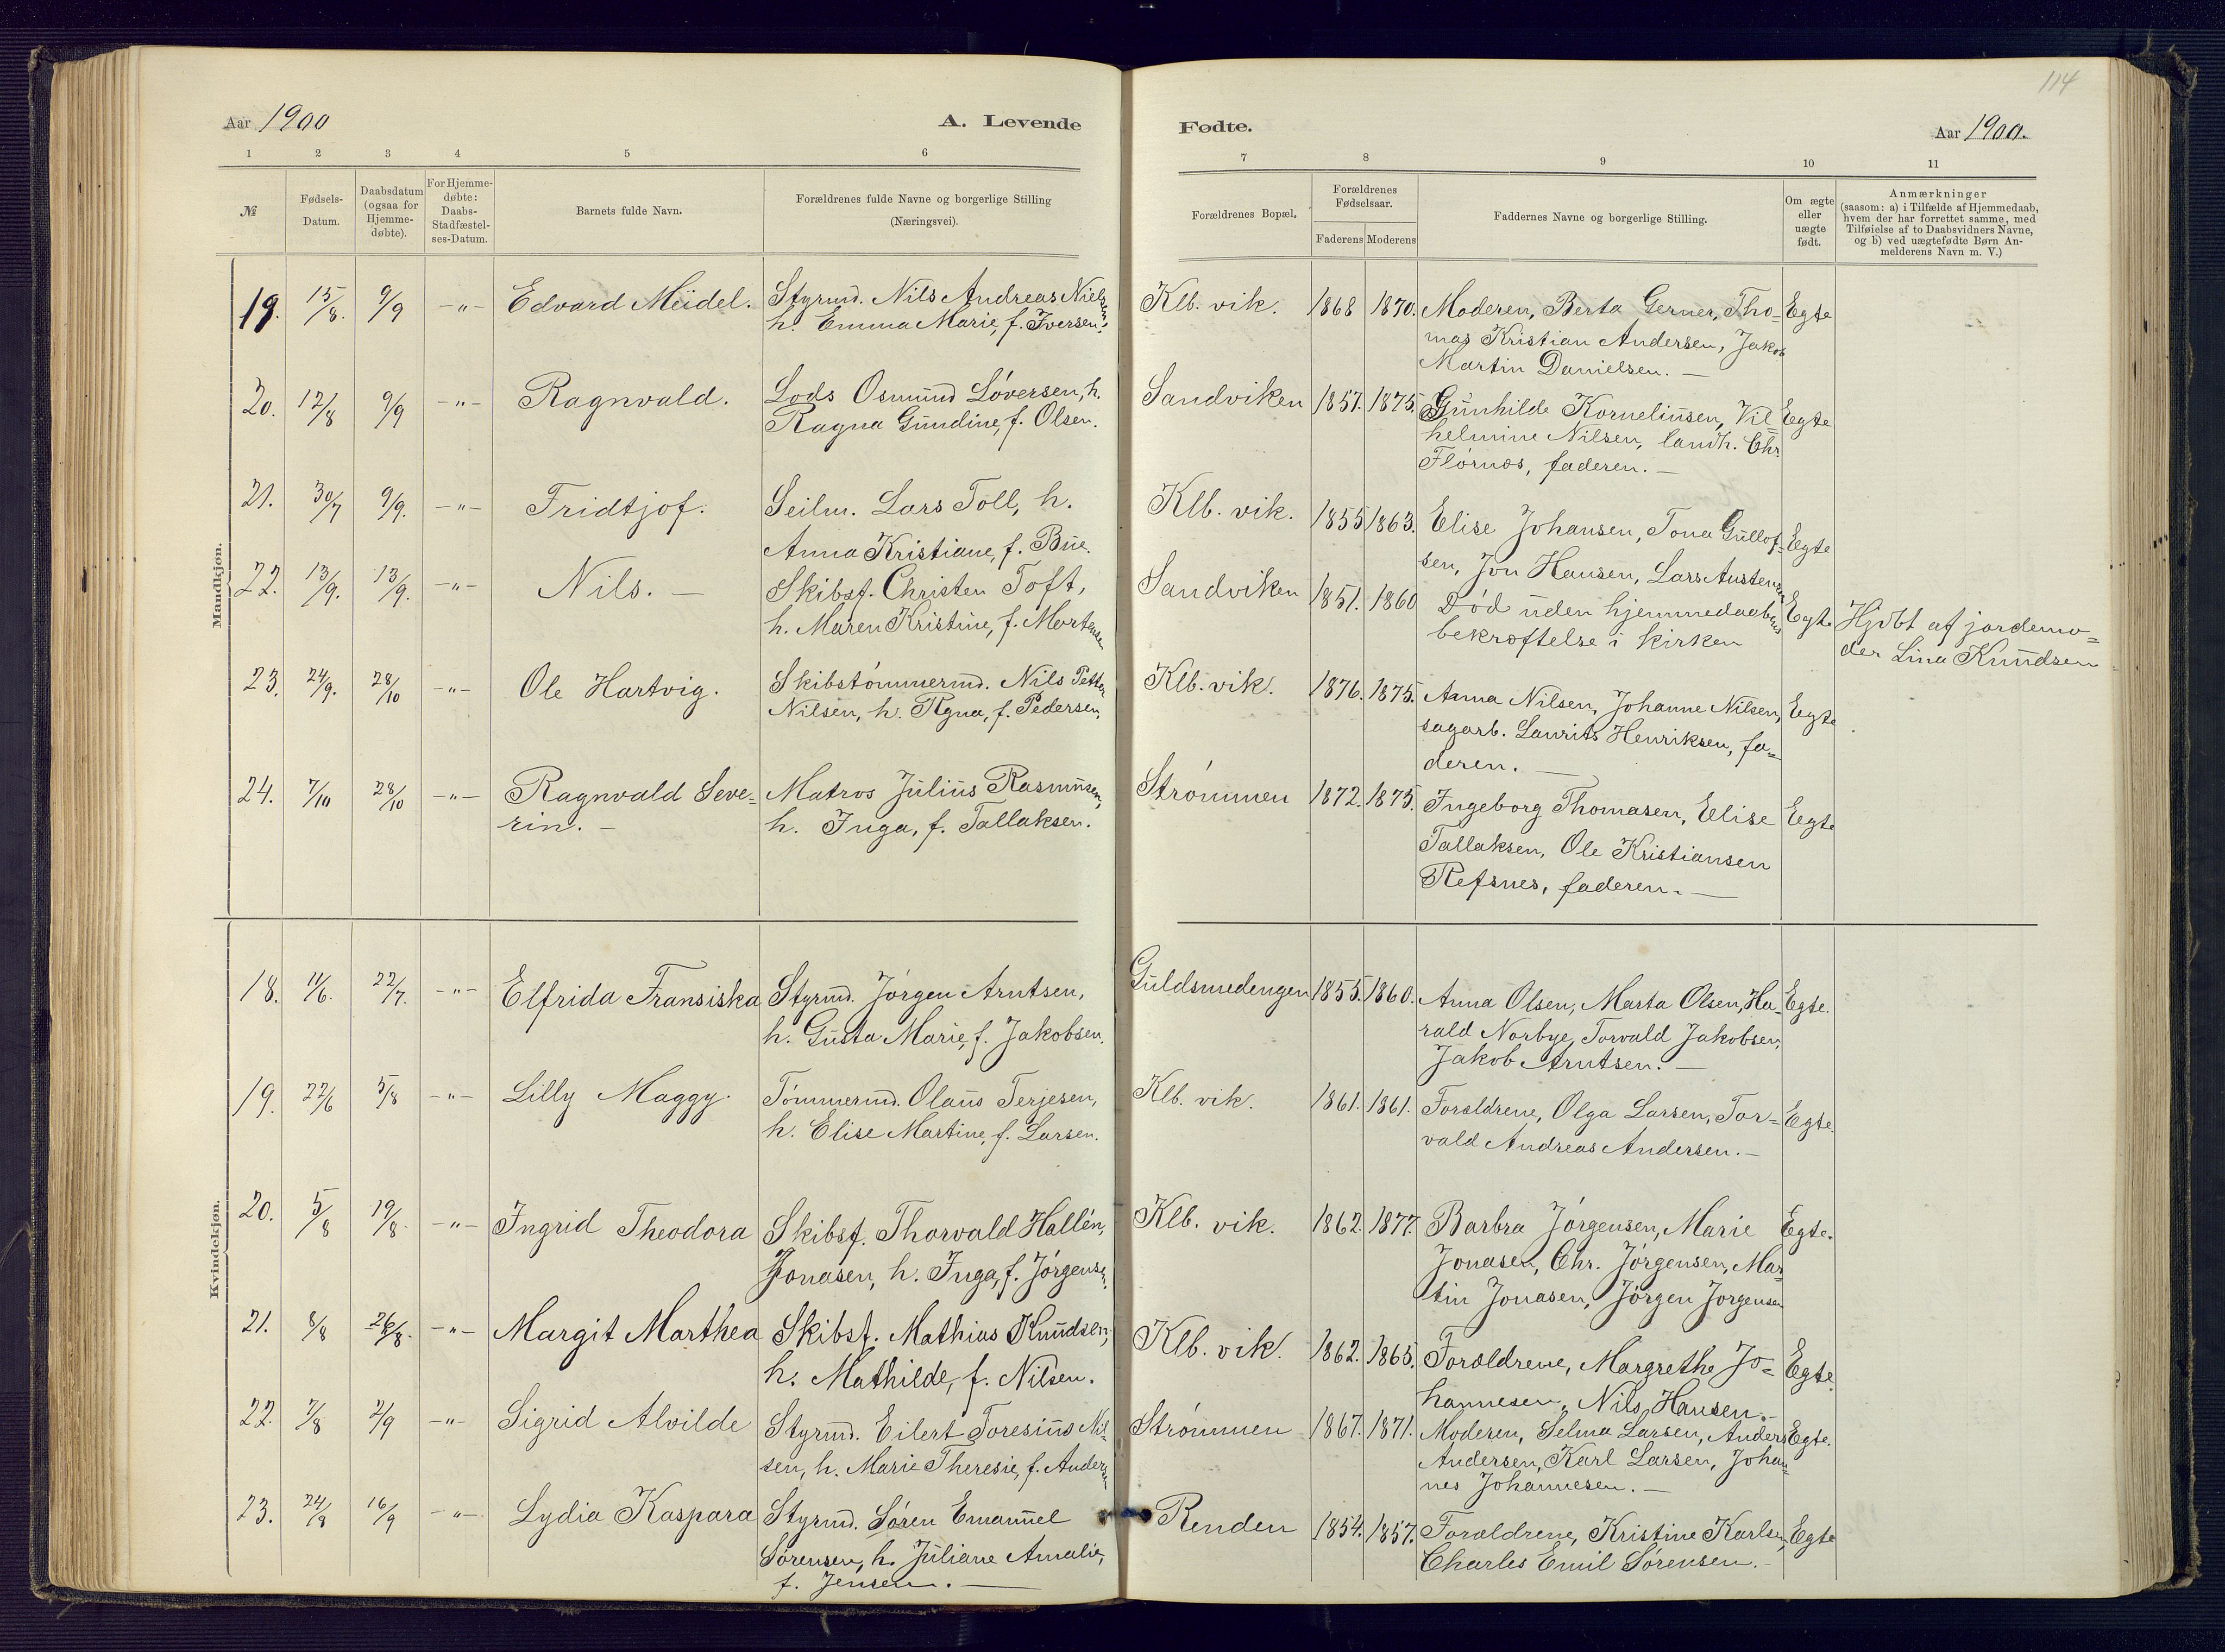 114
Aar 1900
A. Levende
Fødte.
Aar 1900.
1 2 3 4 5 6 7 8 9 10 11
№
Fødsels-
Datum.
Daabsdatum
(ogsaa for
Hjemme-
døbte).
For Hjemme-
døbte:
Daabs-
Stadfæstel-
ses-Datum.
Barnets fulde Navn.
Forældrenes fulde Navne og borgerlige Stilling
(Næringsvei).
Forældrenes Bopæl.
Forældrenes
Fødselsaar.
Faderens Moderens
Faddernes Navne og borgerlige Stilling.
Om ægte
eller
uægte
født.
Anmærkninger
(saasom: a) i Tilfælde af Hjemmedaab,
hvem der har forrettet samme, med
Tilføielse af to Daabsvidners Navne,
og b) ved uægtefødte Børn An-
melderens Navn m. V.)
Mandkjøn.
19. 15/8. 9/9 -"- Edvard Meidel. Styrmd. Nils Andreas Nielsen,
h. Emma Marie, f. Iversen.
Klb. vik. 1868 1870. Moderen, Berta Gerner, Tho= Egte
mas Kristian Andersen, Jakob
Martin Danielsen. —
20. 12/8 9/9 -"- Ragnvald. Lods Osmund Løversen, h.
Ragna Gundine, f. Olsen.
Sandviken 1857. 1875. Gunhilde Korneliusen, Vil= Egte
helmine Nilsen, landh. Chr.
Flørnæs, faderen. —
21. 30/7 9/9. -"- Fridtjof. Seilm. Lars Toll, h.
Anna Kristiane, f. Bue.
Klb. vik. 1855 1863. Elise Johansen, Tona Gullof= Egte
sen, Jon Hansen, Lars Austensen
22. 13/9. 13/9. -"- Nils. — Skibsf. Christen Toft,
h. Maren Kristine, f. Mortensen
Sandviken 1851. 1860 Død uden hjemmedaabens Egte
bekræftelse i kirken
Hjdbt af jordemo=
der Lina Knudsen
23. 24/9. 28/10 -"- Ole Hartvig. Skibstømmermd. Nils Petter
Nilsen, h. Agna, f. Pedersen,
Klb. vik. 1876. 1875. Anna Nilsen, Johanne Nilsen, Egte
sagarb. Laurits Henriksen, fa=
deren. —
24. 7/10 28/10 -"- Ragnvald Seve=
rin. —
Matros Julius Rasmussen,
h. Inga, f. Tallaksen.
Strømmen 1872. 1875. Ingeborg Thomasen, Elise Egte
Tallaksen, Ole Kristiansen
Refsnes, faderen. —
Kvindekjøn.
18. 11/6. 22/7. -"- Elfrida Fransiska Styrmd. Jørgen Arntsen,
h. Gusta Marie, f. Jakobsen.
Guldsmedengen 1855. 1860. Anna Olsen, Marta Olsen, Ha= Egte.
rald Norbye, Torvald Jakobsen,
Jakob Arntsen. —
19. 22/6 5/8 -"- Lilly Maggy. Tømmermd. Olaus Terjesen,
h. Elise Martine, f. Larsen.
Klb. vik. 1861. 1861. Forældrene, Olga Larsen, Tor= Egte.
vald Andreas Andersen. —
20. 5/8 19/8. -"- Ingrid Theodora Skibsf. Thorvald Hallén,
Jonasen, h. Inga, f. Jørgensen.
Klb. vik. 1862. 1877. Barbra Jørgensen, Marie Egte.
Jonasen, Chr. Jørgensen, Mar=
tin Jonasen, Jørgen Jorgensen
21. 8/8 26/8. -"- Margit Marthea Skibsf. Mathias Knudsen,
h. Mathilde, f. Nilsen.
Klb. vik. 1862. 1865. Forældrene, Margrethe Jo= Egte.
hannesen, Nils Hansen. —
22. 7/8 2/9 -"- Sigrid Alvilde Styrmd. Eilert Toresius Nil=
sen, h. Marie Theresie, f. Andersen
Strømmen 1867. 1871. Moderen, Selma Larsen, Anders Egte.
Andersen, Karl Larsen, Johan=
nes Johannesen. —
23. 24/8 16/9 -"- Lydia Kaspara Styrmd. Søren Emanuel
Sørensen, h. Juliane Amalie,
f. Jensen. —
Renden 1854. 1857. Forældrene, Kristine Karlsen, Egte
Charles Emil Sørensen. —